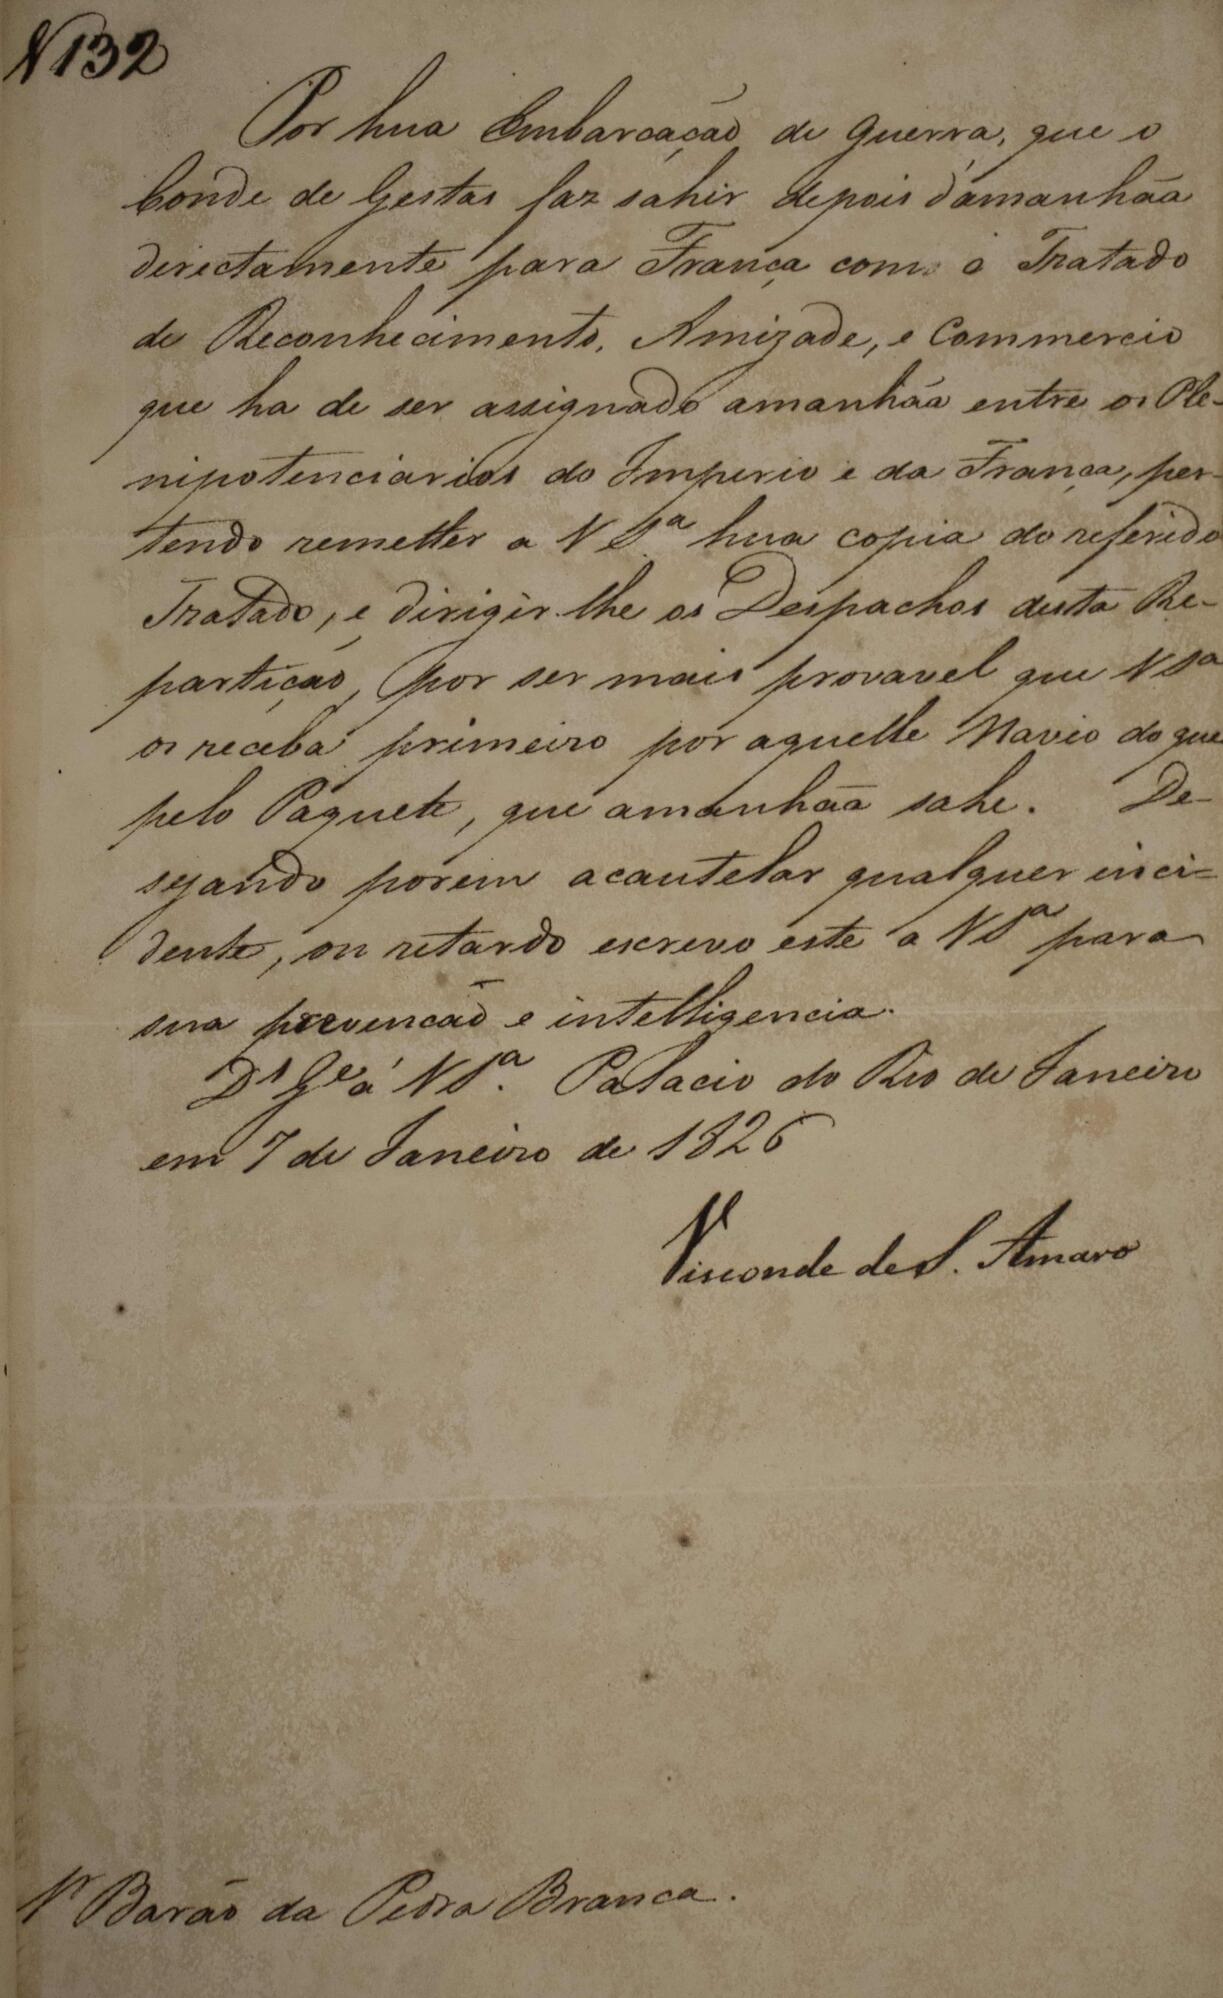 N 132
Por hua Embarcação de Guerra, que o
Conde de Gestas faz sahir depois d'amanhãa
directamente para França com o Tratado
de Reconhecimento, Amizade, e Commercio
que ha de ser assignado amanhãa entre os Ple-
nipotenciarios do Imperio e da França, per-
tendo remetter a V Sª hua copia do referido
Tratado, e dirigir-lhe os Despachos desta Re-
partição, por ser mais provavel que V Sª
os receba primeiro por aquelle Navio do que
pelo Paquete, que amanhãa sahe. De-
sejando porem acautelar qualquer inci-
dente, ou retardo escrevo este a V Sª para
sua prevenção e intelligencia.
Ds Ge á V Sª. Palacio do Rio de Janeiro
em 7 de Janeiro de 1826
Visconde de S. Amaro
Sr Barão da Pedra Branca.